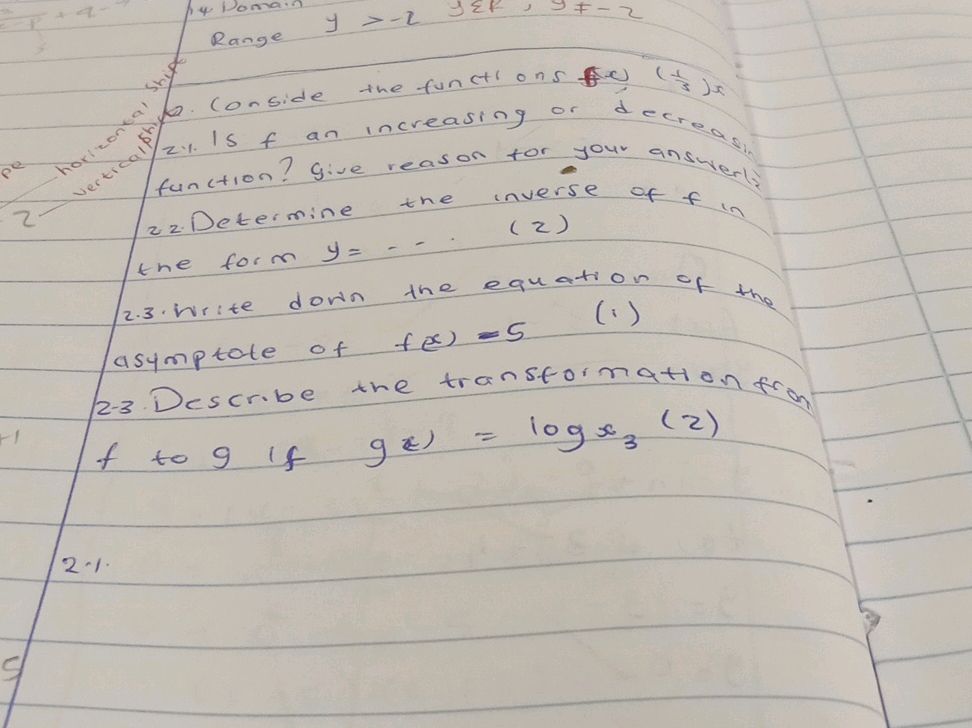 1.4 Domain
Range y > -2 y ≠ -2
horizontal shift
vertical shift
2. Conside the functions f(x) (1/3)x
2.1. Is f an increasing or decreasin
function? Give reason for your answer
2.2. Determine the inverse of f in
the form y = -- . (2)
2.3. Write down the equation of the
asymptote of f(x) -5 (1)
2-3. Describe the transformation from
f to g if gx) = log x3 (2)
2.1.
2
5